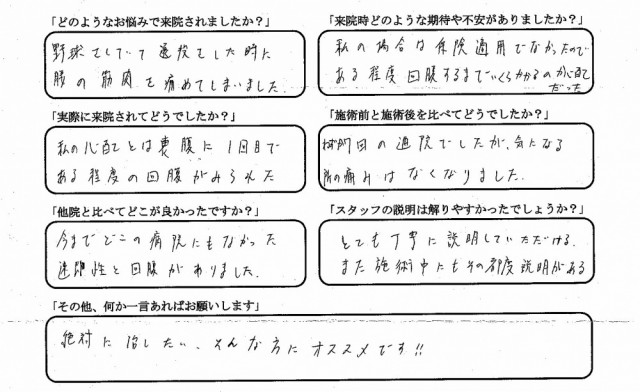 「どのようなお悩みで来院されましたか？」
野球をしていて遠投をした時に
腰の筋肉を痛めてしまいました
「来院時どのような期待や不安がありましたか？」
私の場合は保険適用でなかったので
ある程度回腹するまでいくらかかるのか心配
だった
「実際に来院されてどうでしたか？」
私の心配とは裏腹に1回目で
ある程度の回腹がみられた
「施術前と施術後を比べてどうでしたか？」
回の通院でしたが、気になる
の痛みはなくなりました。
「他院と比べてどこが良かったですか？」
今までどこの病院にもなかった
即性と回腹がありました。
「スタッフの説明は解りやすかったでしょうか？」
とても丁寧に説明していただける。
また施術中にもその都度説明がある
「その他、何か一言あればお願いします」
絶対に治したい、そんな方にオススメです!!